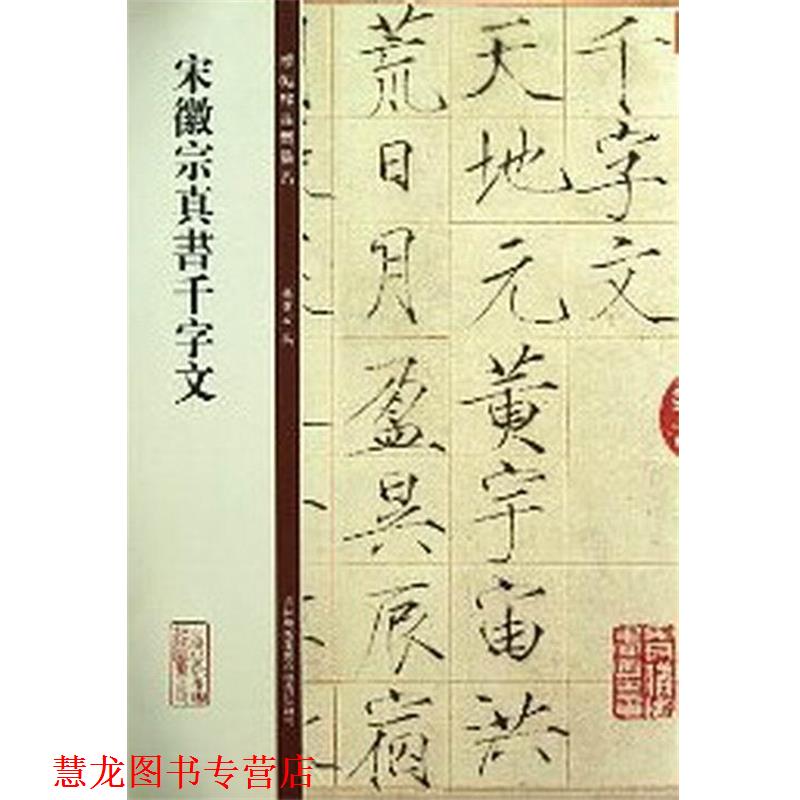 宋徽宗真书千字文
千字文
天地元黄宇宙洪
荒日月盈昃辰宿
慧龙图书专营店